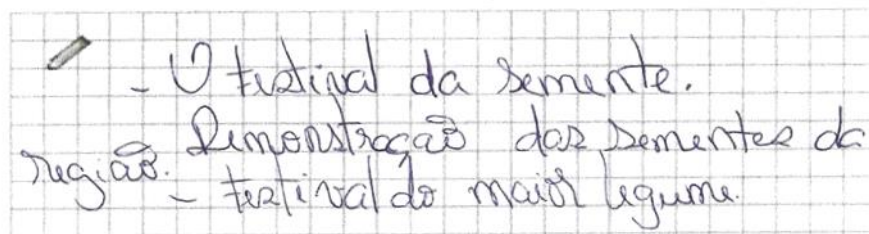 - O festival da semente.
Demonstração das sementes da
região.
- festival do maior legume.